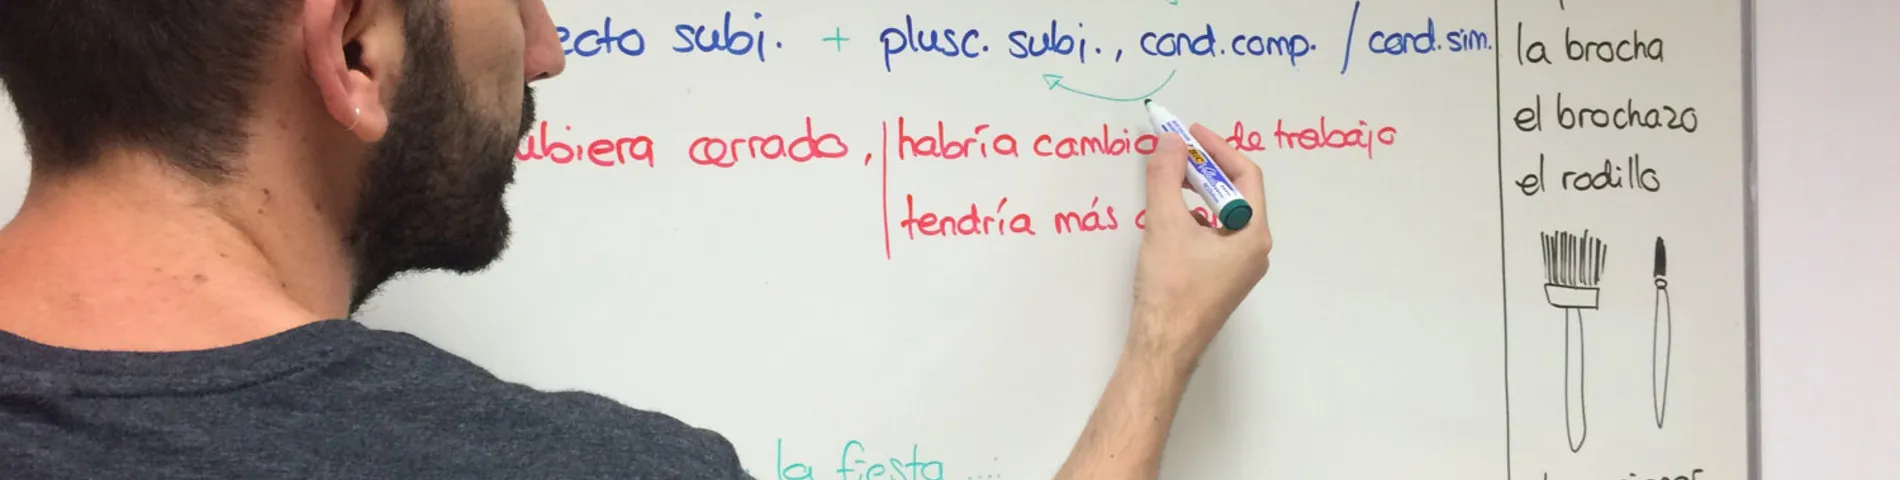 ecto subj. + plusc. subj., cond. comp. / cond. sim.
ubiera cerrado, | habría cambia de trabajo
tendría más
la fiesta ....
la brocha
el brochazo
el rodillo